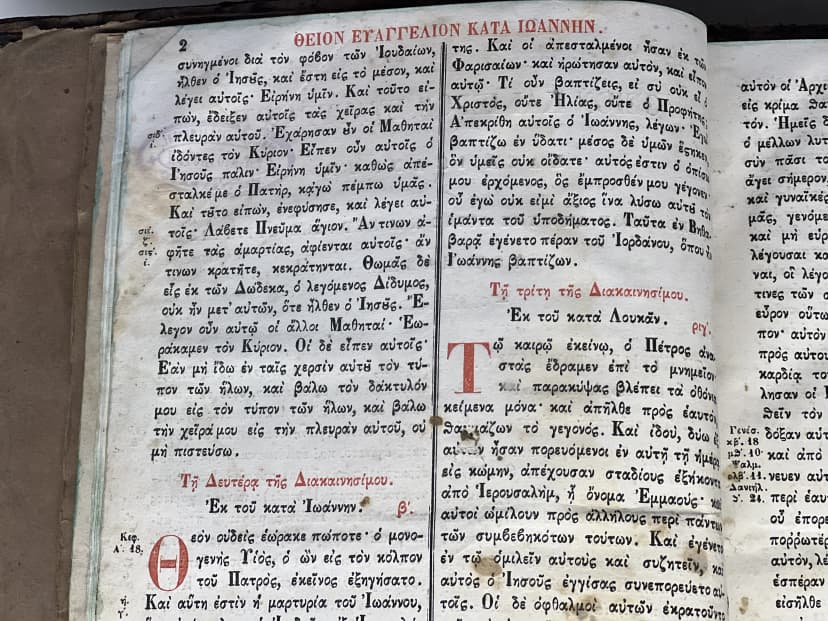 2
ΘΕΙΟΝ ΕΥΑΓΓΕΛΙΟΝ ΚΑΤΑ ΙΩΑΝΝΗΝ.
συνηγμένοι διὰ τὸν φόβον τῶν Ἰουδαίων,
ἦλθεν ὁ Ἰησȣ͂ς, καὶ ἔστη εἰς τὸ μέσον, καὶ
λέγει αὐτοῖς· Εἰρήνη ὑμῖν. Καὶ τοῦτο εἰ-
πὼν, ἔδειξεν αὐτοῖς τὰς χεῖρας καὶ τὴν
πλευρὰν αὑτοῦ. Ἐχάρησαν ȣ̓͂ν οἱ Μαθηταὶ
ἰδόντες τὸν Κύριον. Εἶπεν οὖν αὐτοῖς ὁ
Ἰησοῦς πάλιν· Εἰρήνη ὑμῖν· καθὼς ἀπέ-
σταλκέ με ὁ Πατὴρ, κᾀγὼ πέμπω ὑμᾶς.
Καὶ τȣ͂το εἰπὼν, ἐνεφύσησε, καὶ λέγει αὐ-
τοῖς· Λάβετε Πνεῦμα ἅγιον. Ἄν τινων ἀ-
φῆτε τὰς ἁμαρτίας, ἀφίενται αὐτοῖς· ἄν
τινων κρατῆτε, κεκράτηνται. Θωμᾶς δὲ
εἷς ἐκ τῶν Δώδεκα, ὁ λεγόμενος Δίδυμος,
οὐκ ἦν μετ' αὐτῶν, ὅτε ἦλθεν ὁ Ἰησȣ͂ς. Ἔ-
λεγον οὖν αὐτῷ οἱ ἄλλοι Μαθηταί· Ἑω-
ράκαμεν τὸν Κύριον. Ὁ δὲ εἶπεν αὐτοῖς·
Ἐὰν μὴ ἴδω ἐν ταῖς χερσὶν αὐτȣ͂ τὸν τύ-
πον τῶν ἥλων, καὶ βάλω τὸν δάκτυλόν
μου εἰς τὸν τύπον τῶν ἥλων, καὶ βάλω
τὴν χεῖρά μου εἰς τὴν πλευρὰν αὐτοῦ, οὐ
μὴ πιστεύσω.
Τῇ Δευτέρᾳ τῆς Διακαινησίμου.
Ἐκ τοῦ κατὰ Ἰωάννην.
β'.
Κεφ.
Α'. 18.
Θεὸν οὐδεὶς ἑώρακε πώποτε· ὁ μονο-
γενὴς Υἱὸς, ὁ ὢν εἰς τὸν κόλπον
τοῦ Πατρὸς, ἐκεῖνος ἐξηγήσατο.
Καὶ αὕτη ἐστὶν ἡ μαρτυρία τοῦ Ἰωάννου,
της. Καὶ οἱ ἀπεσταλμένοι ἦσαν ἐκ τῶν
Φαρισαίων· καὶ ἠρώτησαν αὐτὸν, καὶ εἶπον
αὐτῷ· Τί οὖν βαπτίζεις, εἰ σὺ οὐκ εἶ ὁ
Χριστὸς, οὔτε Ἠλίας, οὔτε ὁ Προφήτης;
Ἀπεκρίθη αὐτοῖς ὁ Ἰωάννης, λέγων· Ἐγὼ
βαπτίζω ἐν ὕδατι· μέσος δὲ ὑμῶν ἕστηκεν,
ὃν ὑμεῖς οὐκ οἴδατε· αὐτός ἐστιν ὁ ὀπίσω
μου ἐρχόμενος, ὃς ἔμπροσθέν μου γέγονεν·
οὗ ἐγὼ οὐκ εἰμὶ ἄξιος ἵνα λύσω αὐτȣ͂ τὸν
ἱμάντα τοῦ ὑποδήματος. Ταῦτα ἐν Βηθα-
βαρᾷ ἐγένετο πέραν τοῦ Ἰορδάνου, ὅπου ἦν
Ἰωάννης βαπτίζων.
Τῇ τρίτῃ τῆς Διακαινησίμου.
Ἐκ τοῦ κατὰ Λουκᾶν.
ριγ'.
Τῷ καιρῷ ἐκείνῳ, ὁ Πέτρος ἀνα-
στὰς ἔδραμεν ἐπὶ τὸ μνημεῖον·
καὶ παρακύψας βλέπει τὰ ὀθόνια
κείμενα μόνα· καὶ ἀπῆλθε πρὸς ἑαυτὸν,
θαυμάζων τὸ γεγονός. Καὶ ἰδοὺ, δύω ἐξ
αὐτῶν ἦσαν πορευόμενοι ἐν αὐτῇ τῇ ἡμέρᾳ
εἰς κώμην, ἀπέχουσαν σταδίους ἑξήκοντα
ἀπὸ Ἱερουσαλὴμ, ᾗ ὄνομα Ἐμμαούς· καὶ
αὐτοὶ ὡμίλουν πρὸς ἀλλήλους περὶ πάντων
τῶν συμβεβηκότων τούτων. Καὶ ἐγένετο
ἐν τῷ ὁμιλεῖν αὐτοὺς καὶ συζητεῖν, καὶ
αὐτὸς ὁ Ἰησοῦς ἐγγίσας συνεπορεύετο αὐ-
τοῖς. Οἱ δὲ ὀφθαλμοὶ αὐτῶν ἐκρατοῦντο
αὐτὸν οἱ Ἀρχι
εἰς κρίμα θα
τόν. Ἡμεῖς δ
ὁ μέλλων λυτ
σὺν πᾶσι το
ἄγει σήμερον,
καὶ γυναῖκές
μᾶς, γενόμε
καὶ μὴ εὑρ
λέγουσαι κα
ναι, οἳ λέγο
τινες τῶν σ
εὗρον οὕτω
πον· αὐτὸν
πρὸς αὐτού
καρδίᾳ το
λησαν οἱ
θεῖν τὸν
δόξαν αὑτ
καὶ ἀπὸ
νευεν αὐτ
περὶ ἑαυ
οὗ ἐπορε
πορρωτέρ
αὐτὸν, λέ
ἑσπέραν
εἰσῆλθε
Γενέσ.
Ψαλμ.
Δανιήλ